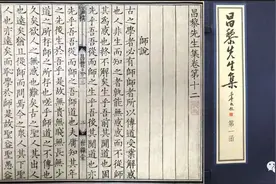 昌黎先生集卷第十二
師說
古之學者必有師師者所以傳道受業解惑
也人非生而知之者孰能無惑惑而不從師
其為惑也終不解矣生乎吾前其聞道也固
先乎吾吾從而師之生乎吾後其聞道也亦
先乎吾吾從而師之吾師道也夫庸知其年
之先後生於吾乎是故無貴無賤無長無少
道之所存師之所存也嗟乎師道之不傳也
久矣欲人之無惑也難矣古之聖人其出人
也遠矣猶且從師而問焉今之衆人其下聖
人也亦遠矣而恥學於師是故聖益聖愚益
昌黎先生集
第一函